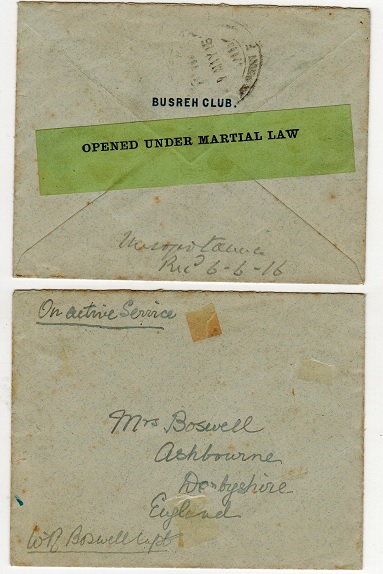 BUSREH CLUB.
OPENED UNDER MARTIAL LAW
Mesopotamia
Rec'd 6-6-16
On active Service
Mrs Boswell
Ashbourne
Derbyshire
England
Boswell Capt